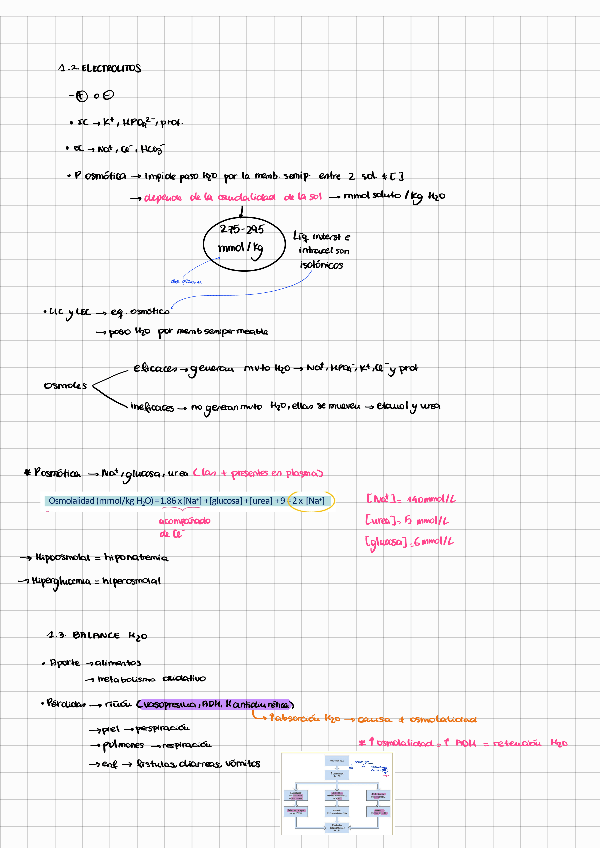 1.2 ELECTROLITOS
- ⊕ o ⊖
• IC → K⁺, HPO₄²⁻, prot.
• EC → Na⁺, Cl⁻, HCO₃⁻
• P osmótica → Impide paso H₂O por la memb. semip. entre 2 sol. ≠ [ ]
→ depende de la osmolalidad de la sol → mmol soluto / kg H₂O
275-295
mmol/kg
Líq. interst e
intracel son
isotónicos
• LIC y LEC → eq. osmótico
→ paso H₂O por memb semipermeable
Osmoles
eficaces → generan mvto H₂O → Na⁺, HPO₄⁻, K⁺, Cl⁻ y prot
ineficaces → no generan mvto H₂O, ellas se mueven → etanol y urea
* P osmótica → Na⁺, glucosa, urea (las + presentes en plasma)
Osmolalidad (mmol/kg H₂O) = 1.86 x [Na⁺] + [glucosa] + [urea] + 9 = 2 x [Na⁺]
acompañado
de Cl⁻
[Na⁺] = 140 mmol/L
[urea] = 5 mmol/L
[glucosa] = 6 mmol/L
→ Hipoosmolal = hiponatremia
→ Hiperglucemia = hiperosmolal
1.3. BALANCE H₂O
• Aporte → alimentos
→ metabolismo oxidativo
• Pérdidas → riñón (vasopresina, ADH, H antidiurética)
↳ ↑absorción H₂O → causa ≠ osmolalidad
→ piel → perspiración
* ↑ osmolalidad = ↑ ADH = retención H₂O
→ pulmones → respiración
→ enf → fístulas, diarreas, vómitos